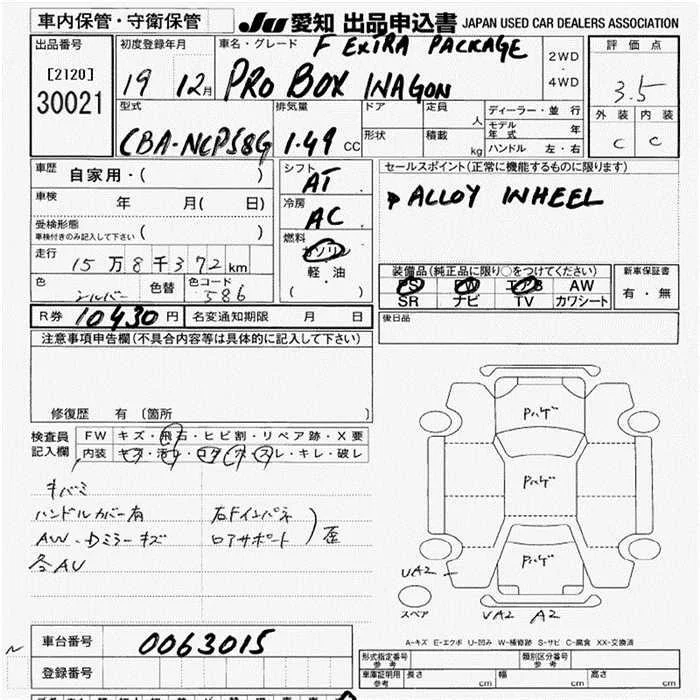 車内保管・守衛保管
Ju 愛知 出品申込書 JAPAN USED CAR DEALERS ASSOCIATION
出品番号
[2120]
30021
初度登録年月
19 12月
車名・グレード
F EXTRA PACKAGE
PRO BOX WAGON
2WD
・
4WD
評価点
3.5
外装 内装
C C
型式
CBA-NCP58G
排気量
1.49 CC
ドア
形状
定員
人
積載
kg
ディーラー・並行
モデル年式 年
ハンドル 左・右
車歴 自家用・( )
車検 年 月( 日)
受検形態
車検付きのみ記入して下さい ( )
走行 15万8千372km
色 シルバー 色替 色コード 586
シフト
AT
冷房
AC
燃料
ガソリン
・
軽・油
( )
セールスポイント(正常に機能するものに限ります)
ALLOY WHEEL
装備品(純正品に限り○をつけてください)
PS PW エアB AW
SR ナビ TV カワシート
新車保証書
有・無
R券 10430円 名変通知期限 月 日
後日品
注意事項申告欄(不具合内容等は具体的に記入して下さい)
修復歴 有 〔箇所 〕
検査員記入欄
FW キズ・飛石・ヒビ割・リペア跡・X要
内装 キズ・汚レ・コゲ・穴・スレ・キレ・破レ
キバミ
ハンドルカバー有
AW・Dミラーキズ
各AU
右Fインパネ
ロアサポート
歪
Pハゲ
Pハゲ
Pハゲ
UA2
スペア
UA2 A2
A-キズ E-エクボ U-凹み W-補修跡 S-サビ C-腐食 XX-交換済
車台番号 0063015
登録番号
形式指定番号 参考
類別区分番号 参考
車庫証明用 参考 長さ cm 幅 cm 高さ cm